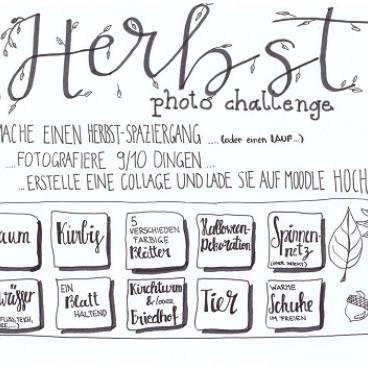 Herbst
photo challenge
MACHE EINEN HERBST-SPAZIERGANG .... (oder einen LAUF...)
... FOTOGRAFIERE 9/10 DINGEN ...
... ERSTELLE EINE COLLAGE UND LADE SIE AUF MOODLE HOCH
aum
Kürbis
5
VERSCHIEDEN
FARBIGE
Blätter
Halloween-
Dekoration
Spinnen-
netz
(ODER INSEKT)
EIN
Blatt
HALTEND
Kirchturm
&/ODER
Friedhof
Tier
WARME
Schuhe
IM FREIEN